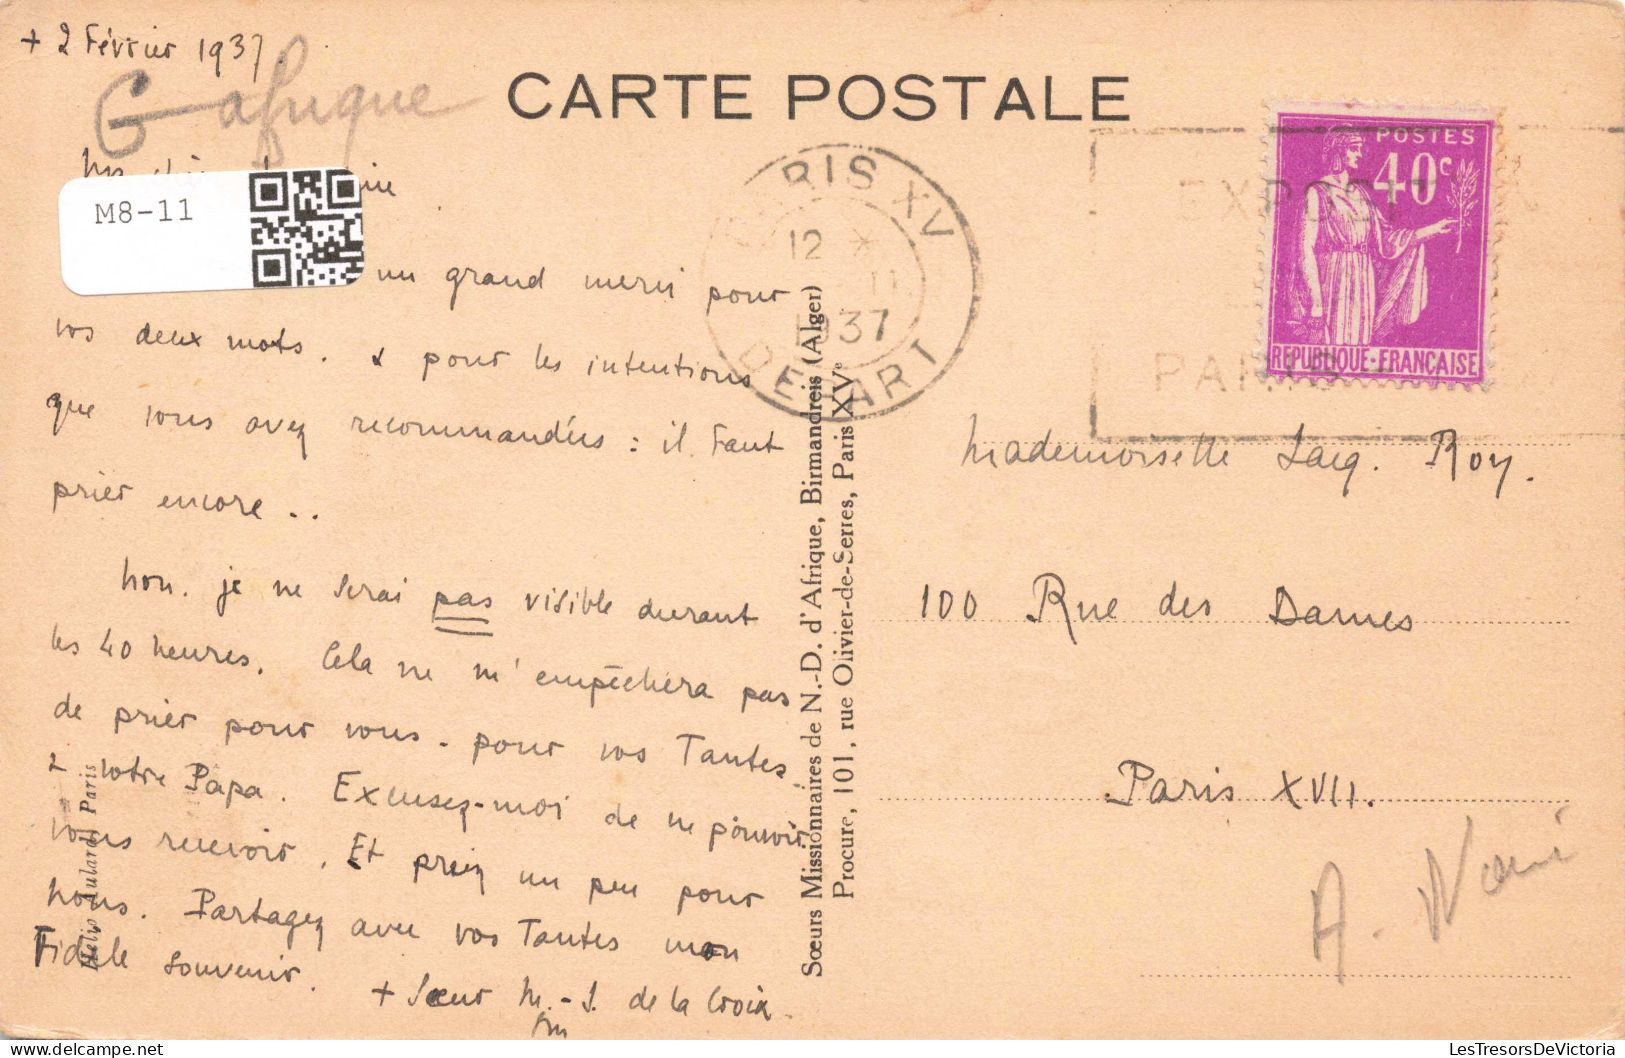 + 2 Février 1937.
G afrique
CARTE POSTALE
M8-11
un grand merci pour
vos deux mots. & pour les intentions
que vous avez recommandées : il faut
prier encore ..
Non. je ne serai pas visible durant
les 40 heures. Cela ne m'empêchera pas
de prier pour vous - pour vos Tantes
& votre Papa. Excusez-moi de ne pouvoir
vous recevoir. Et priez un peu pour
nous. Partagez avec vos Tantes mon
Fidèle souvenir.
+ Sœur M.-J. de la Croix.
Hélio Aulard, Paris
Sœurs Missionnaires de N.-D. d'Afrique, Birmandreis (Alger)
Procure, 101, rue Olivier-de-Serres, Paris XVe
PARIS XV
12 *
II
1937
DEPART
EXPOSIT
PARIS
POSTES
40c
REPUBLIQUE-FRANÇAISE
Mademoiselle Jacq. Roy.
100 Rue des Dames
Paris XVII.
LesTresorsDeVictoria - delcampe.net